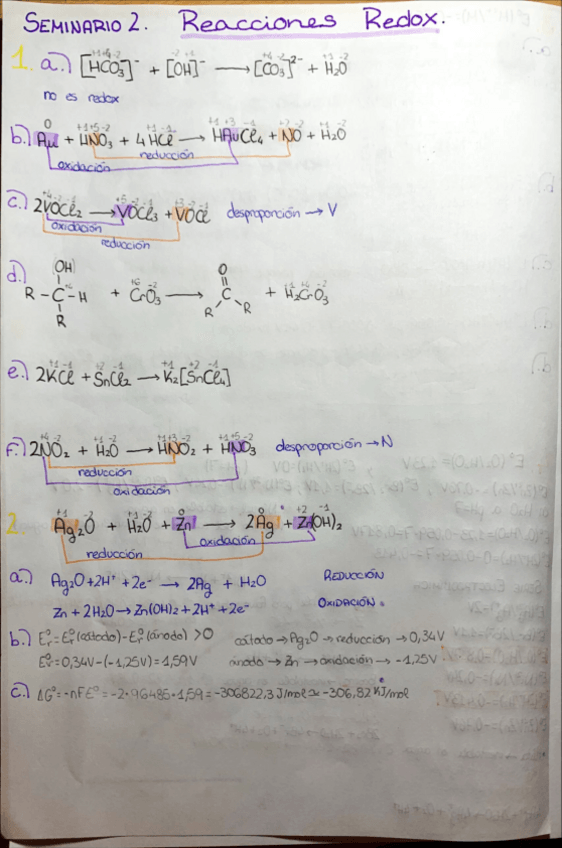 SEMINARIO 2. Reacciones Redox.
1. a.) [HCO₃]⁻ + [OH]⁻ ⟶ [CO₃]²⁻ + H₂O
no es redox
b.) Au + HNO₃ + 4HCl ⟶ HAuCl₄ + NO + H₂O
reducción
oxidación
c.) 2VOCl₂ ⟶ VOCl₃ + VOCl desproporción → V
oxidación
reducción
d.) R-C-H + CrO₃ ⟶ C + H₂CrO₃
OH
R
O
R R
e.) 2KCl + SnCl₂ ⟶ K₂[SnCl₄]
f.) 2NO₂ + H₂O ⟶ HNO₂ + HNO₃ desproporción → N
reducción
oxidación
2. Ag₂O + H₂O + Zn ⟶ 2Ag + Zn(OH)₂
oxidación
reducción
a.) Ag₂O + 2H⁺ + 2e⁻ ⟶ 2Ag + H₂O REDUCCIÓN
Zn + 2H₂O → Zn(OH)₂ + 2H⁺ + 2e⁻ OXIDACIÓN.
b.) Eᵣ° = Eᵣ°(cátodo) - Eᵣ°(ánodo) > 0 cátodo → Ag₂O → reducción → 0,34V
Eᵣ° = 0,34V - (-1,25V) = 1,59V ánodo → Zn → oxidación → -1,25V
c.) ΔG° = -nFE° = -2·96485·1,59 = -306822,3 J/mol ≈ -306,82 KJ/mol